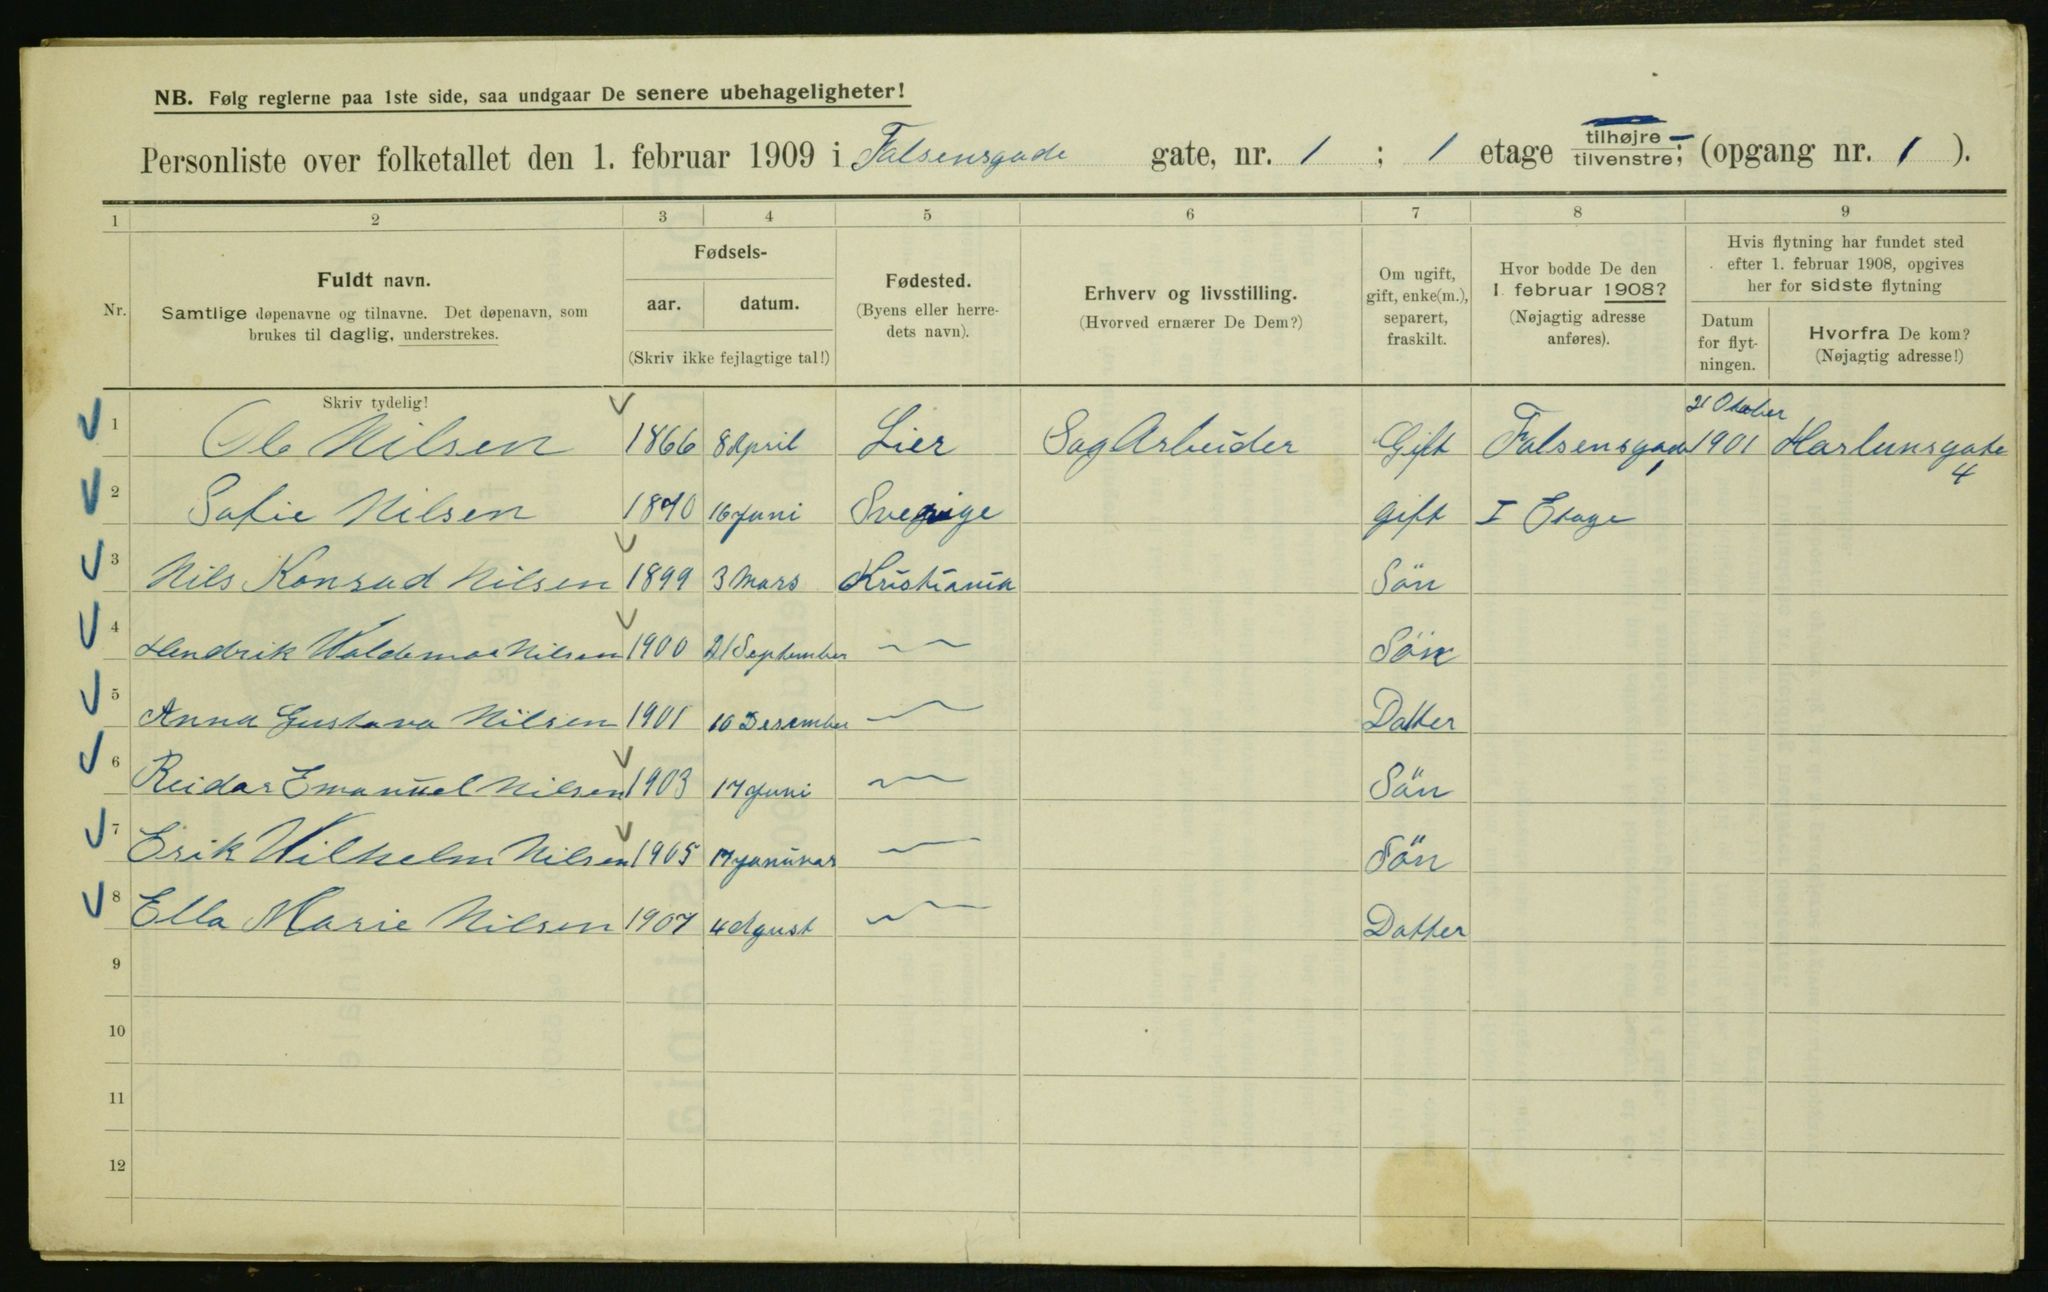 NB. Følg reglerne paa 1ste side, saa undgaar De senere ubehageligheter!
Personliste over folketallet den 1. februar 1909 i Falsensgade gate, nr. 1 ; 1 etage tilhøjre tilvenstre; (opgang nr. 1 ).
1 2 3 4 5 6 7 8 9
Nr.
Fuldt navn.
Samtlige døpenavne og tilnavne. Det døpenavn, som
brukes til daglig, understrekes.
Fødsels-
aar. datum.
(Skriv ikke fejlagtige tal!)
Fødested.
(Byens eller herre-
dets navn).
Erhverv og livsstilling.
(Hvorved ernærer De Dem?)
Om ugift,
gift, enke(m.),
separert,
fraskilt.
Hvor bodde De den
1. februar 1908?
(Nøjagtig adresse
anføres).
Hvis flytning har fundet sted
efter 1. februar 1908, opgives
her for sidste flytning
Datum
for flyt-
ningen.
Hvorfra De kom?
(Nøjagtig adresse!)
Skriv tydelig!
1 Ole Nilsen 1866 8 April Lier Sag Arbeider Gift Falsensgade 1 21 Oktober 1901 Harlunsgate 4
2 Sofie Nilsen 1870 16 Juni Sverige gift I Etage
3 Nils Konrad Nilsen 1899 3 Mars Kristiania Sön
4 Hendrik Waldemar Nilsen 1900 21 September Sön
5 Anna Gustava Nilsen 1901 10 Desember Datter
6 Reidar Emanuel Nilsen 1903 17 Juni Sön
7 Erik Wilhelm Nilsen 1905 17 Januar Sön
8 Ella Marie Nilsen 1907 4 Agust Datter
9
10
11
12